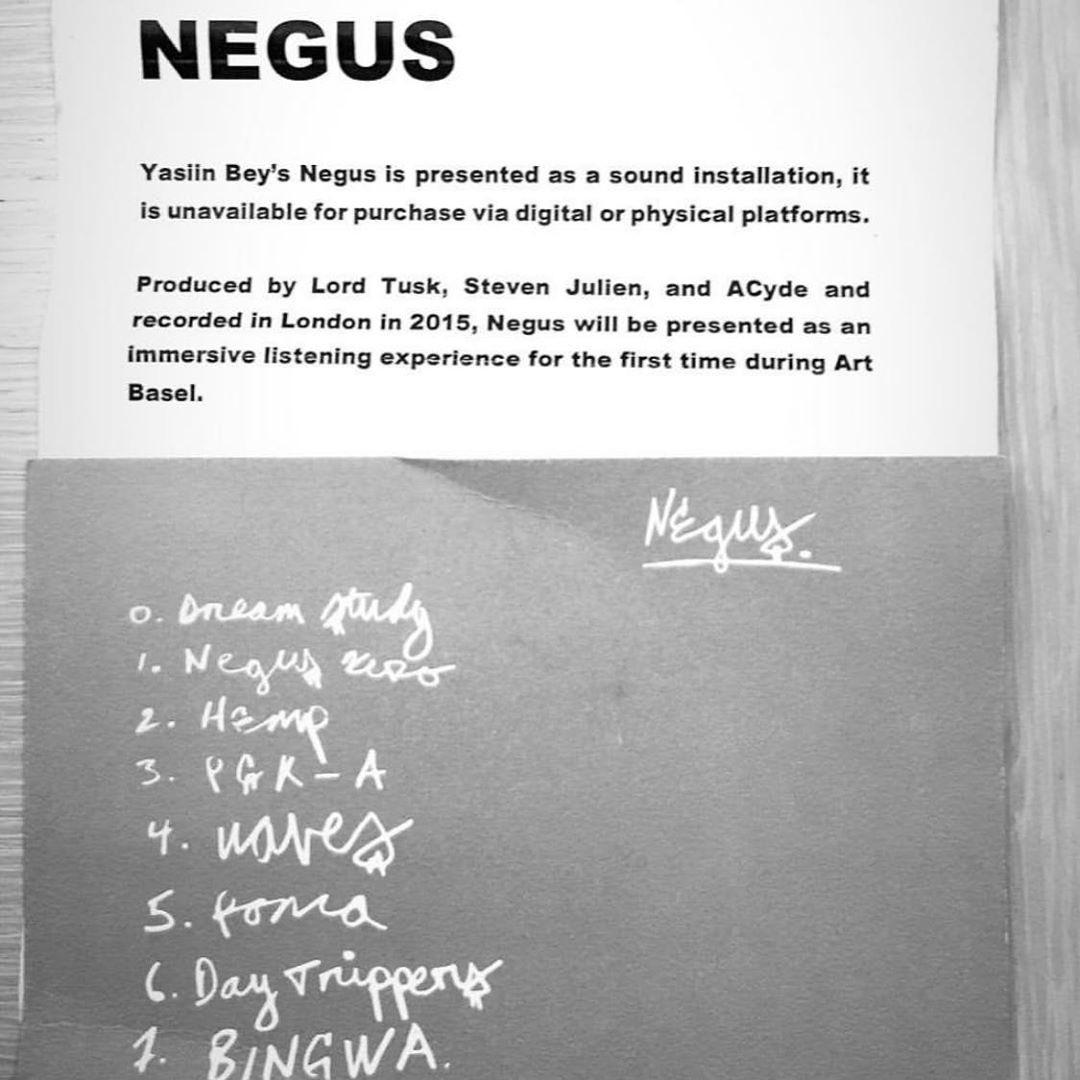 NEGUS
Yasiin Bey's Negus is presented as a sound installation, it
is unavailable for purchase via digital or physical platforms.
Produced by Lord Tusk, Steven Julien, and ACyde and
recorded in London in 2015, Negus will be presented as an
immersive listening experience for the first time during Art
Basel.
Negus.
0. Dream study
1. Negus zero
2. Hemp
3. PGK-A
4. waves
5.
6. Day Trippers
7. BINGWA.